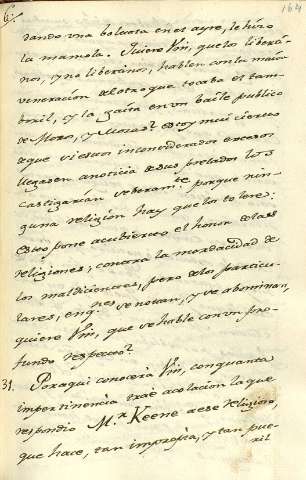 164
dando una bolueta en el ayre, le hizo
la mamola. Quiere Vm, que los liberti-
nos, y no libertinos, hablen con la misma
veneración de el otro que tocaba el tam-
bril, y la gaita en un baile publico
de Moros, y Moras? estoy mui cierto
de que si estos inconsiderados excesos
llegasen a noticia de sus prelados los
castigarían severamte. porque nin-
guna religion hay que los tolere:
esto pone a cubierto el honor de las
religiones, contra la mordacidad de
los maldicientes, pero de los particu-
lares, en qnes. se notan, y se abominan,
quiere Vm, que se hable con un pro-
fundo respecto?
31. Por aqui conocerá Vm, con quanta
impertinencia trae a colacion la que
respondio Mr. Keene a ese religioso,
que hace, tan impropia, y tan pue-
ril